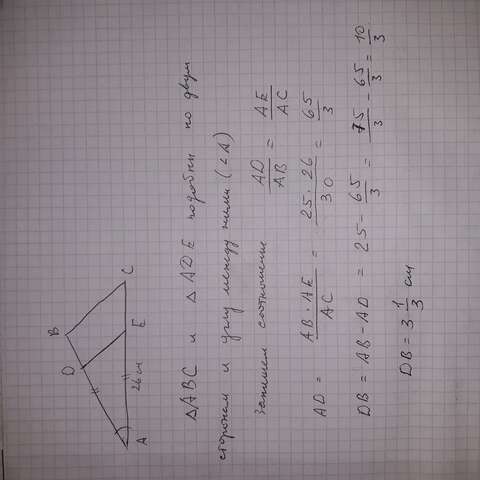 B
D
A
E
C
26 см
△ABC и △ADE подобны по двум
сторонам и углу между ними (∠A)
Запишем соотношение AD/AB = AE/AC
AD = AB · AE/AC = 25 · 26/30 = 65/3
DB = AB - AD = 25 - 65/3 = 75/3 - 65/3 = 10/3
DB = 3 1/3 см